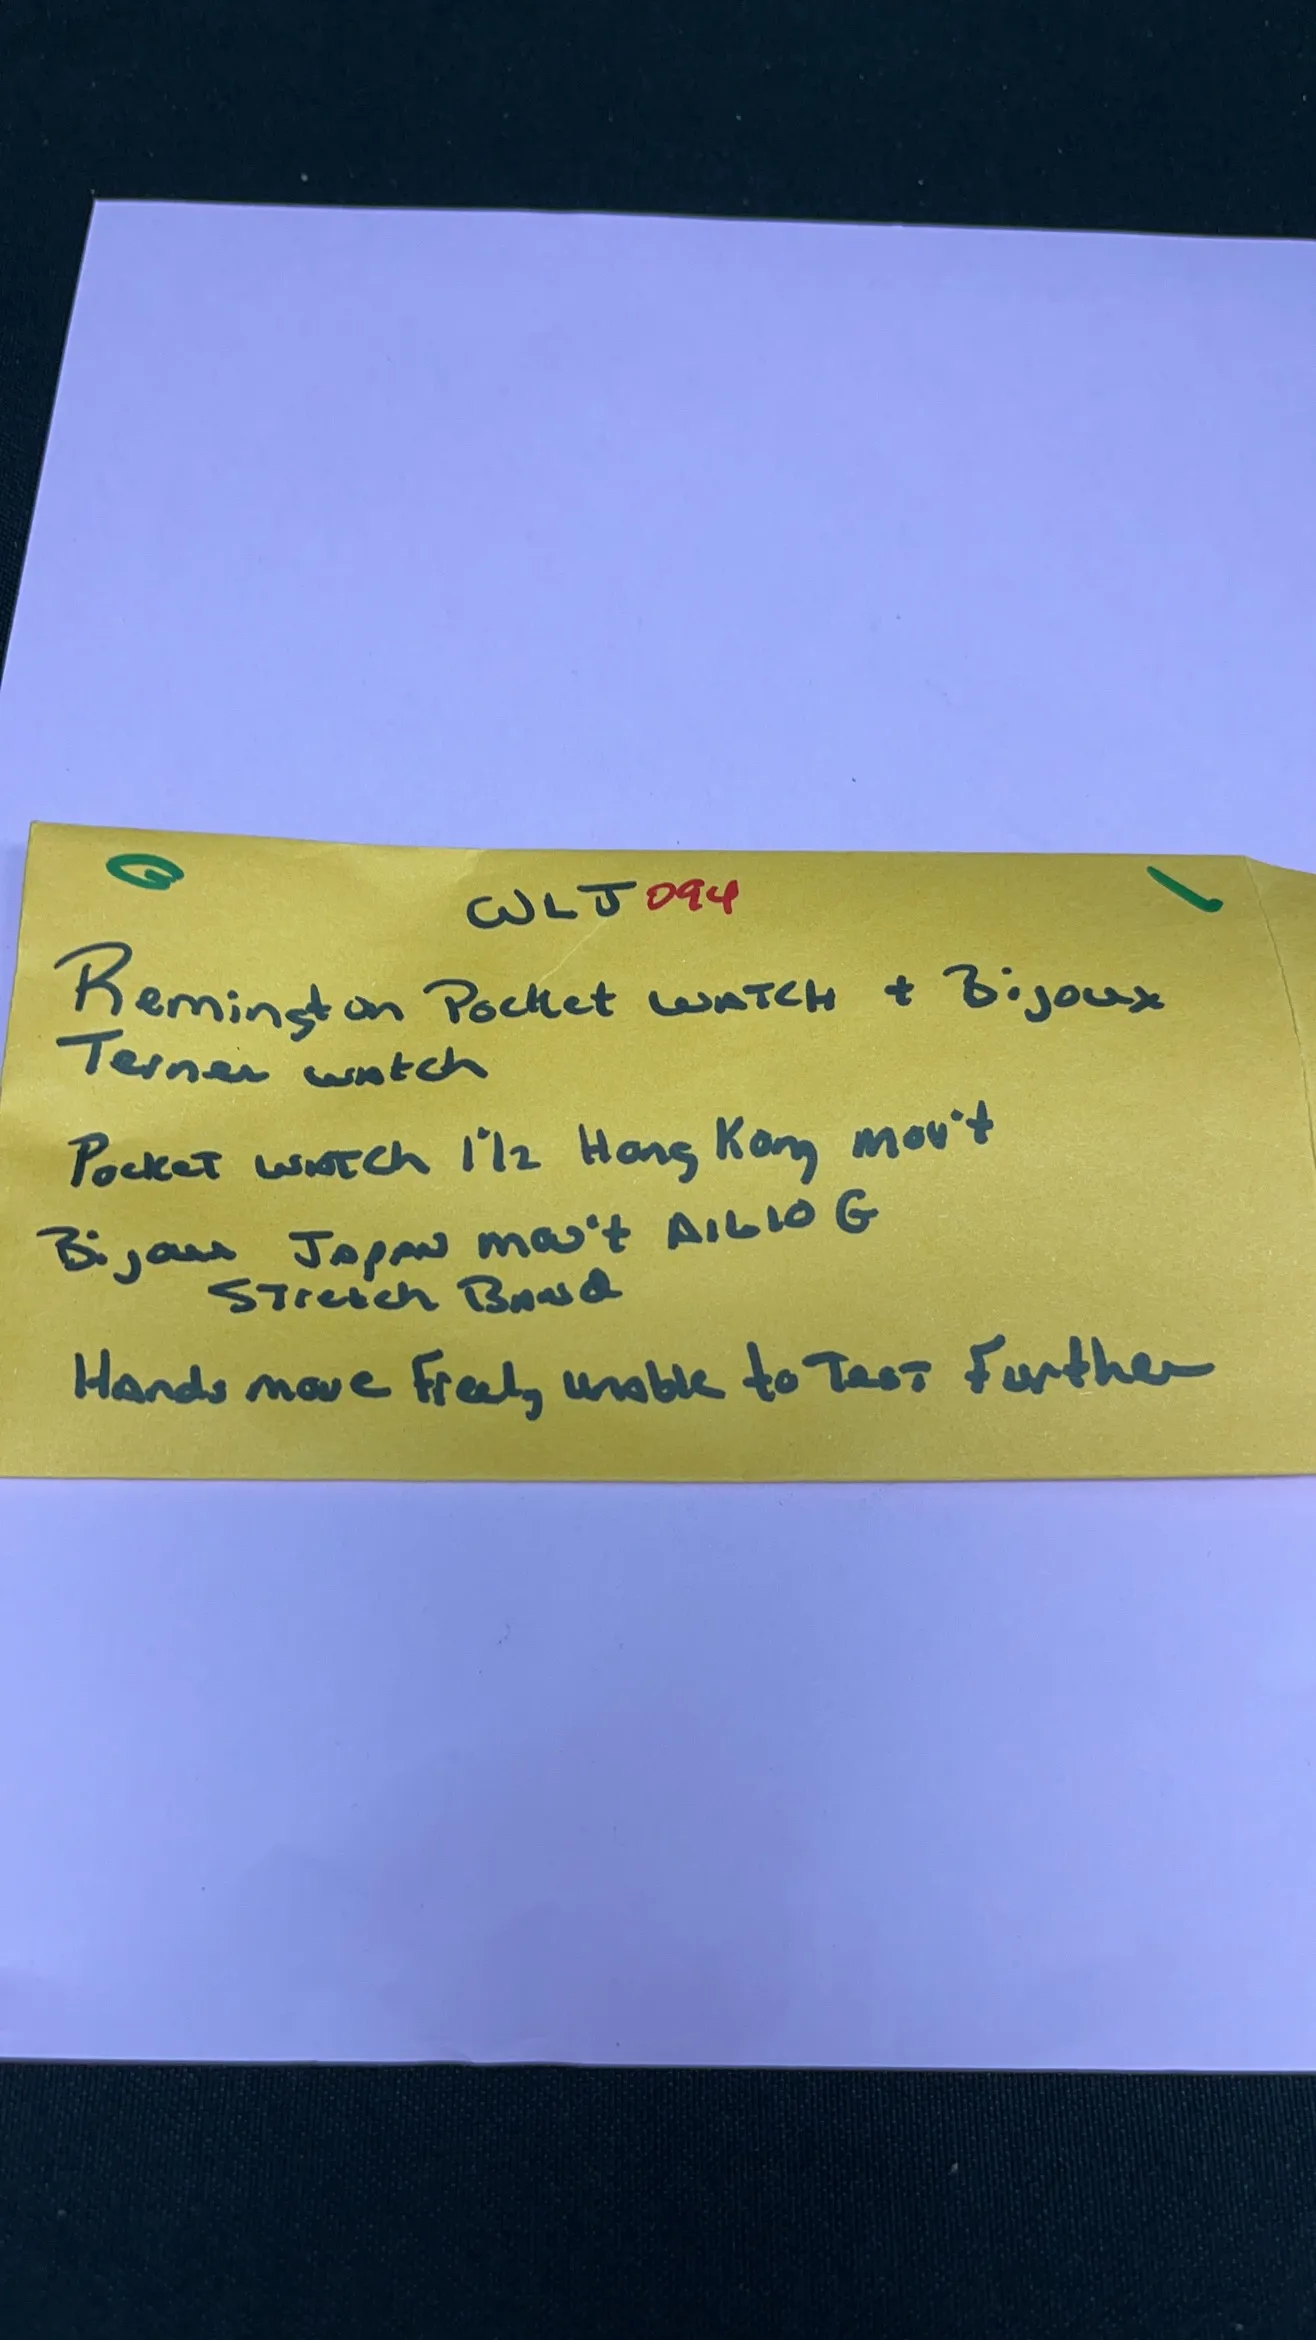 CWLJ 094
Remington Pocket WATCH + Bijoux
Terner watch
Pocket watch 1 1/2 Hong Kong mov't
Bijoux Japan mov't A1610 G
Stretch Band
Hands move freely unable to Test Further